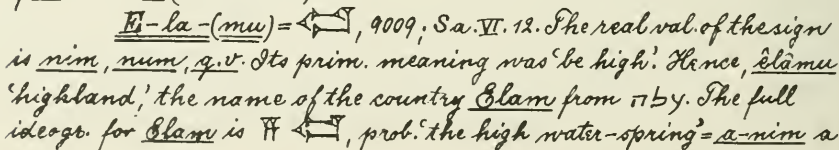 E-la-(mu) = 𒉏, 9009; Sa. VI. 12. The real val. of the sign
is nim, num, q.v. Its prim. meaning was 'be high'. Hence, êlâmu
'highland', the name of the country Elam from עלה. The full
ideogr. for Elam is 𒀀 𒉏, prob. 'the high water-spring' = a-nim a